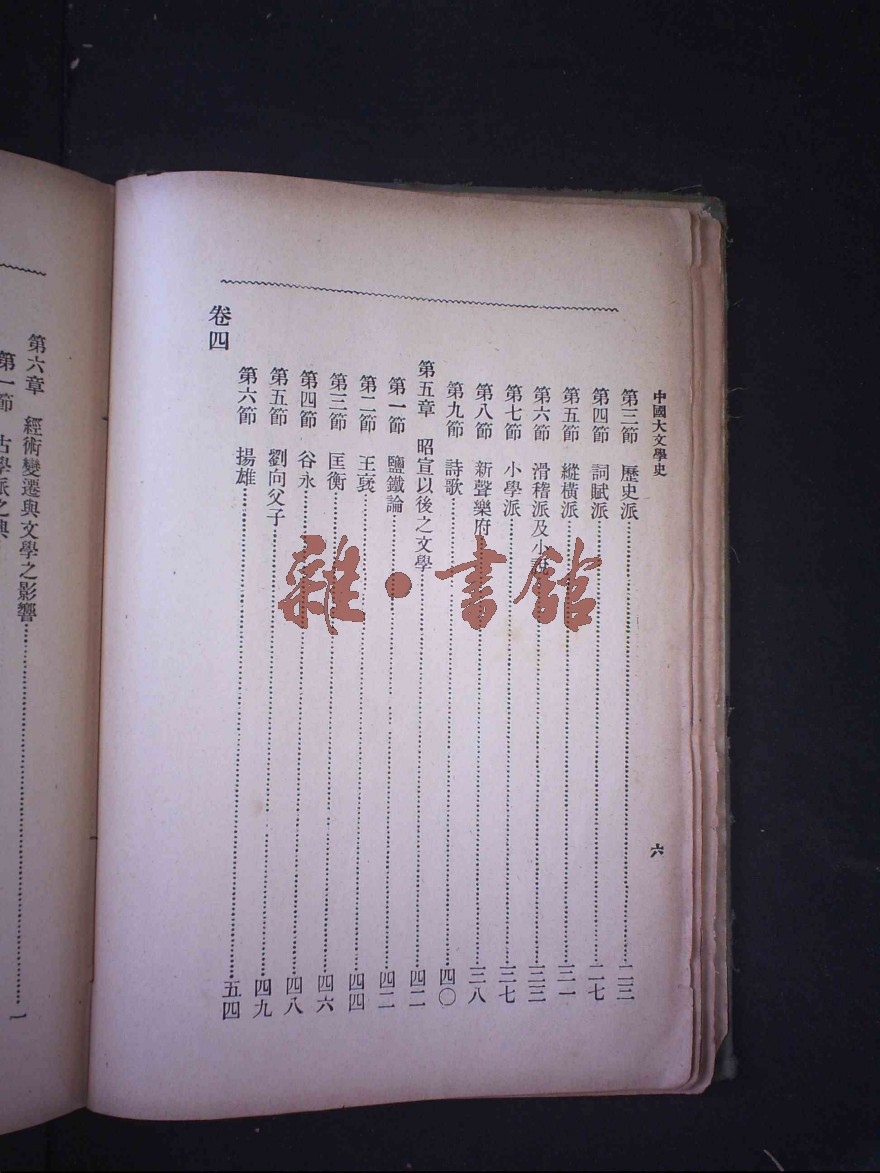 中國大文學史
六
第三節 歷史派 二三
第四節 詞賦派 二七
第五節 縱橫派 三一
第六節 滑稽派及小 三三
第七節 小學派 三七
第八節 新聲樂府 三八
第九節 詩歌 四〇
第五章 昭宣以後之文學 四二
第一節 鹽鐵論 四二
第二節 王襃 四四
第三節 匡衡 四六
第四節 谷永 四八
第五節 劉向父子 四九
第六節 揚雄 五四
卷四
第六章 經術變遷與文學之影響 一
第一節 古學派之
雜·書館